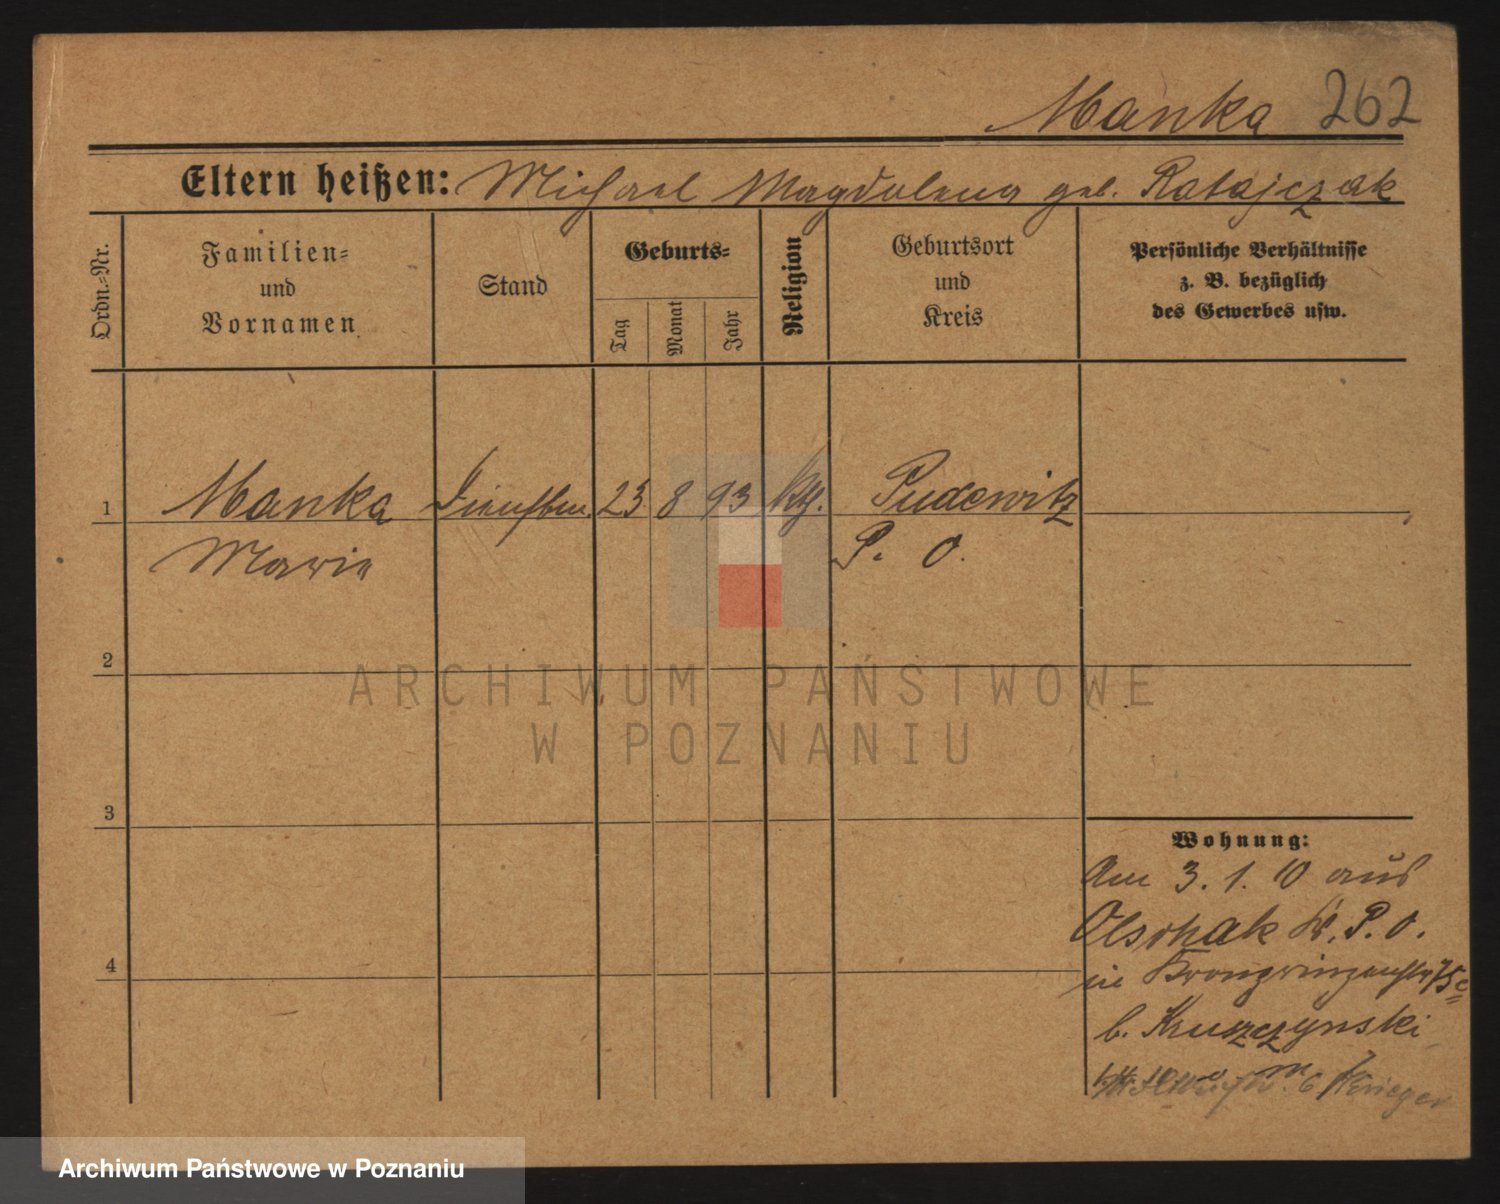 Manka 262
Eltern heißen: Michael Magdalena geb. Ratajczak
Ordn.-Nr.
Familien-
und
Vornamen
Stand
Geburts-
Tag
Monat
Jahr
Religion
Geburtsort
und
Kreis
Persönliche Verhältnisse
z. B. bezüglich
des Gewerbes usw.
1 Manka 23 8 93 kth. Pudewitz
Marie P. O.
2
3
4
Wohnung:
Am 3. 1. 10 aus
P. O.
in Kronprinzenstr 75c
b. Kruszczynski
Krieger
ARCHIWUM PAŃSTWOWE
W POZNANIU
Archiwum Państwowe w Poznaniu